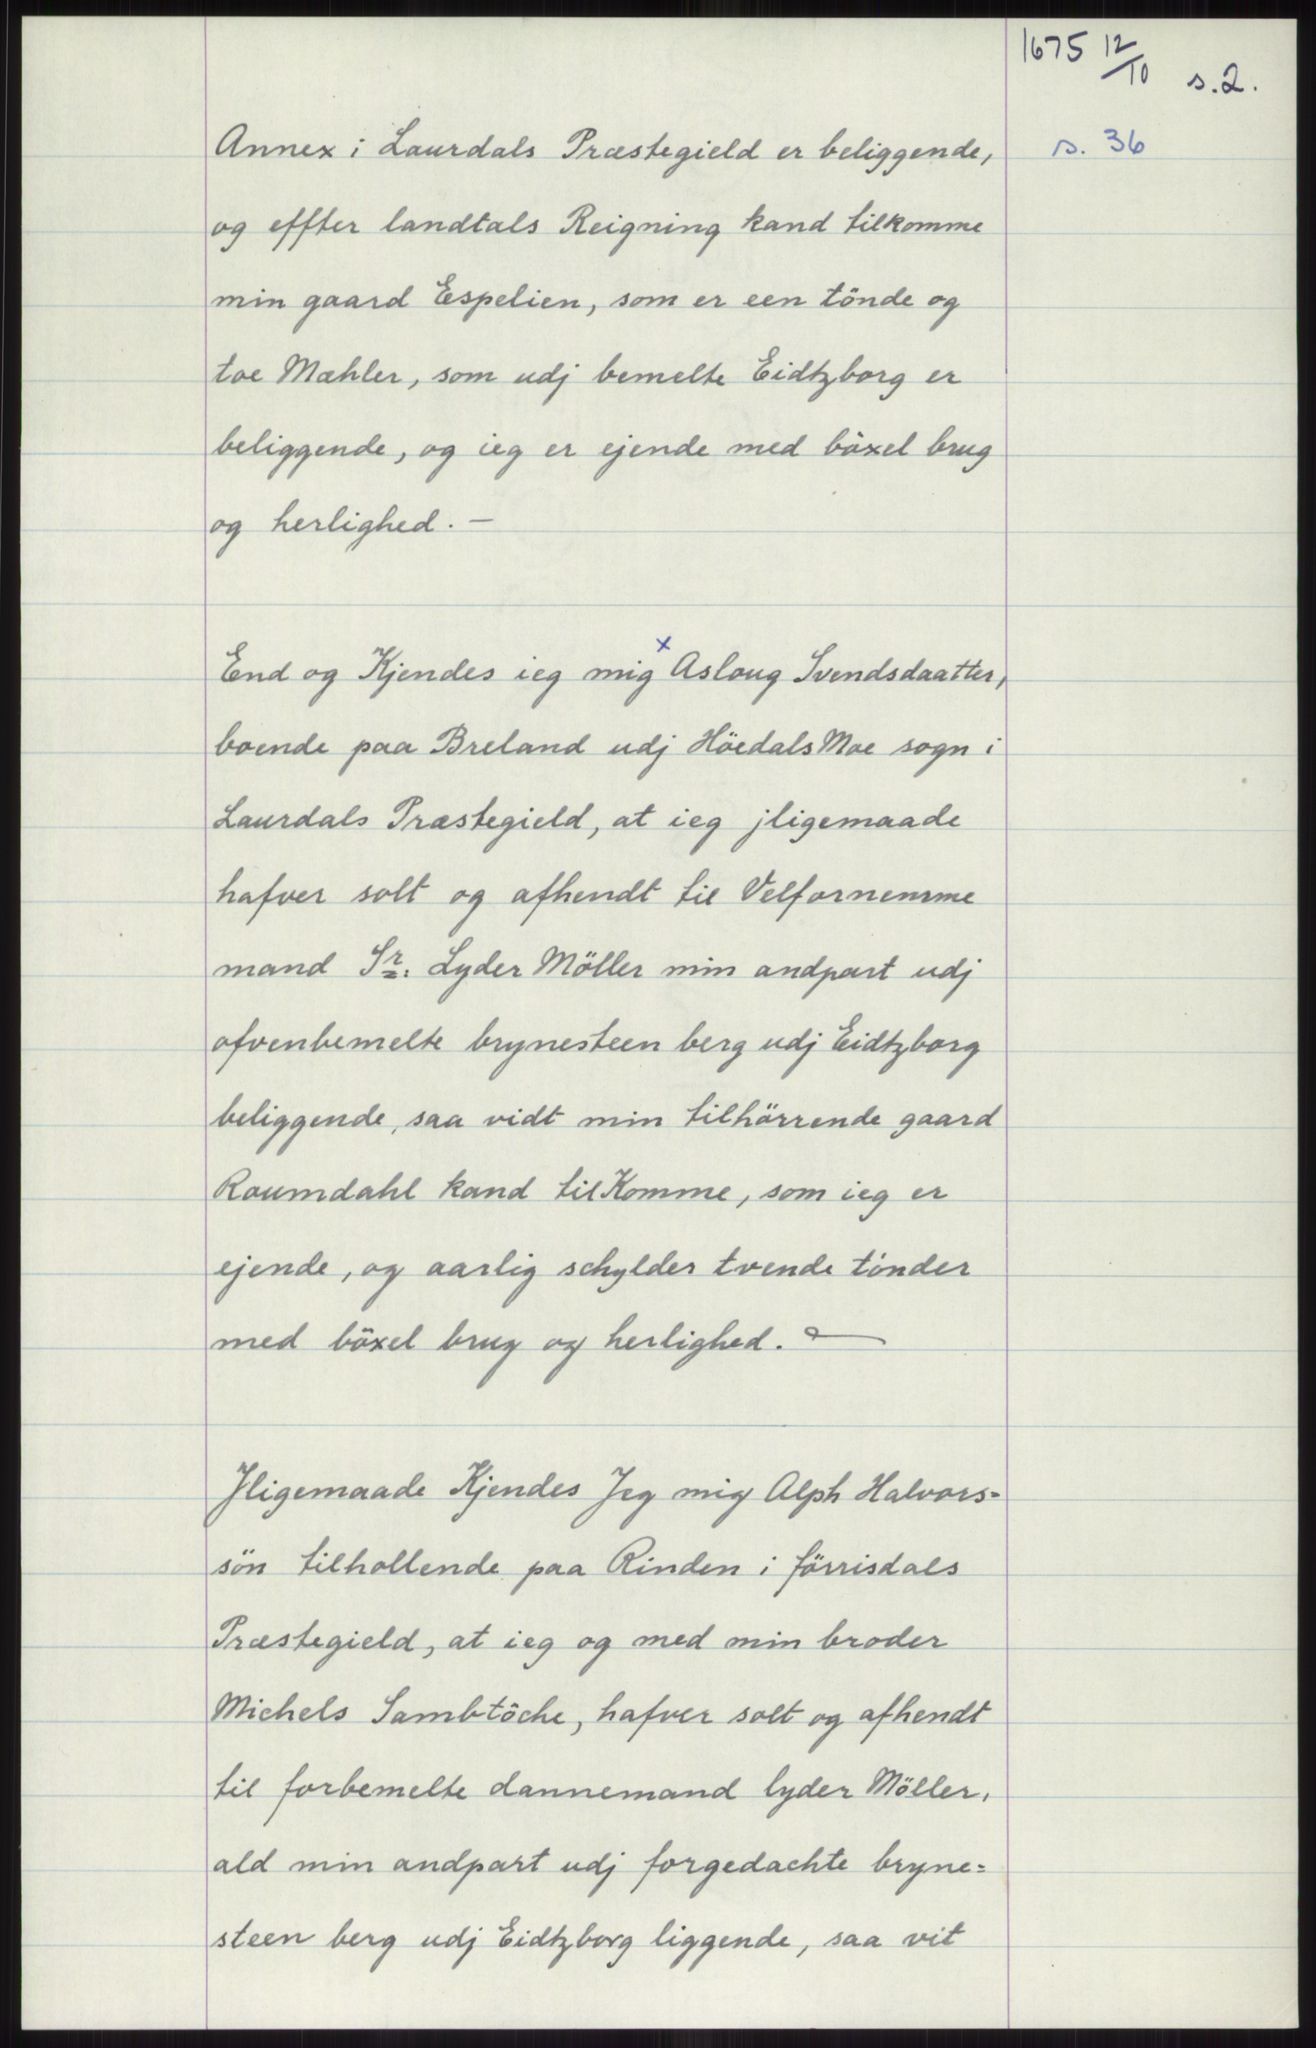 1675 12/10 s.2.
s. 36
Annex i Laurdals Præstegield er beliggende,
og effter landtals Reigning kand tilkomme
min gaard Espelien, som er een tönde og
toe Mæhler, som udj bemelte Eidtzborg er
beliggende, og ieg er ejende med böxel brug
og herlighed. —
End og Kjendes ieg mig x Asloug Svendsdaatter,
boende paa Breland udj HöedalsMoe sogn i
Laurdals Præstegield, at ieg jligemaade
hafver solt og afhendt til Velfornemme
mand Sr: Lyder Möller min andpart udj
ofvenbemelte brynesteen berg udj Eidtzborg
beliggende, saa vidt min tilhörrende gaard
Roumdahl kand tilKomme, som ieg er
ejende, og aarlig schylder tvende tönder
med böxel brug og herlighed. —
Jligemaade Kjendes Jeg mig Alph Halvors=
sön tilhollende paa Rinden i förrisdals
Præstegield, at ieg og med min broder
Michels Sambtöche, hafver solt og afhendt
til forbemelte dannemand lyder Möller,
ald min andpart udj forgedachte bryne=
steen berg udj Eidtzborg liggende, saa vit